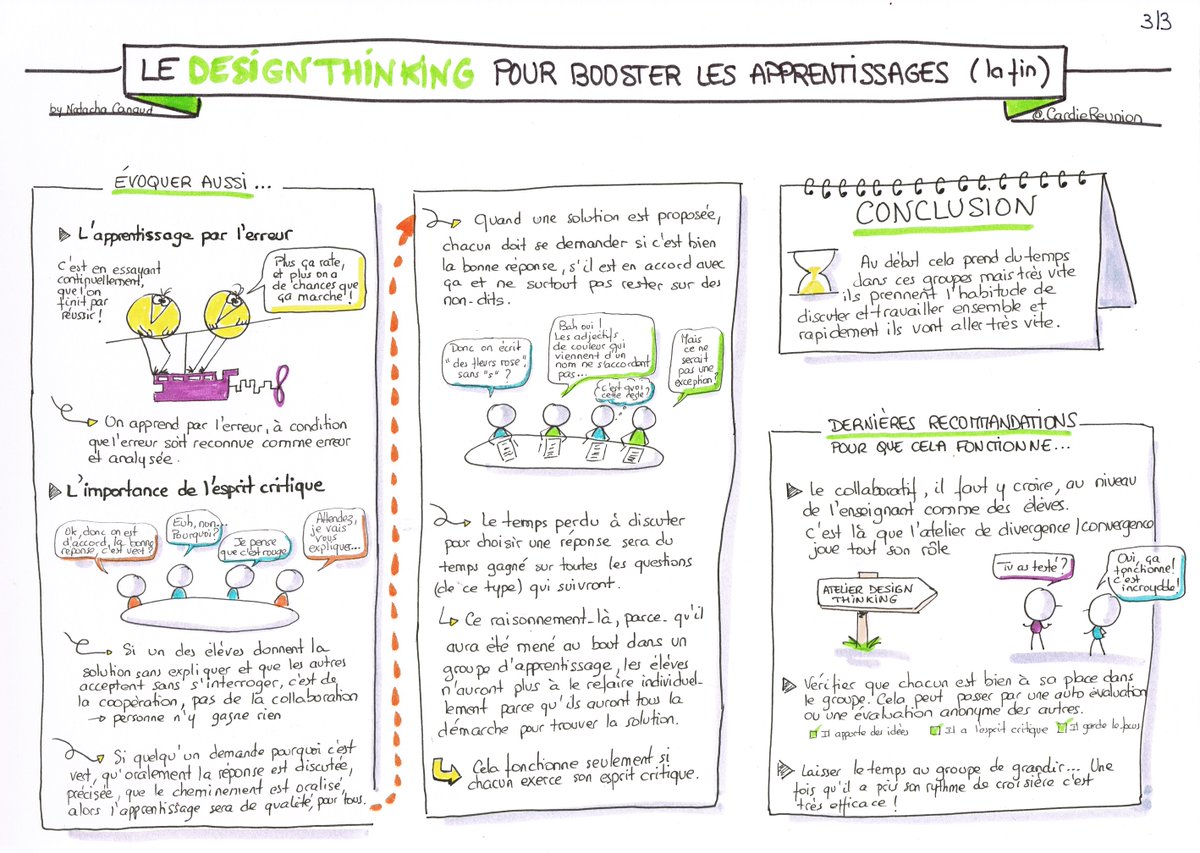 3/3
LE DESIGN THINKING POUR BOOSTER LES APPRENTISSAGES (la fin)
by Natacha Canaud
@CardieReunion
ÉVOQUER AUSSI...
L'apprentissage par l'erreur
C'est en essayant
continuellement,
que l'on
finit par
réussir !
Plus ça rate,
et plus on a
de chances que
ça marche !
On apprend par l'erreur, à condition
que l'erreur soit reconnue comme erreur
et analysée.
L'importance de l'esprit critique
Ok, donc on est
d'accord, la bonne
réponse, c'est vert ?
Euh, non...
Pourquoi ?
Je pense
que c'est rouge
Attendez,
je vais
vous
expliquer...
Si un des élèves donnent la
solution sans expliquer et que les autres
acceptent sans s'interroger, c'est de
la coopération, pas de la collaboration
→ personne n'y gagne rien
Si quelqu'un demande pourquoi c'est
vert, qu'oralement la réponse est discutée,
précisée, que le cheminement est oralisé,
alors l'apprentissage sera de qualité, pour tous.
Quand une solution est proposée,
chacun doit se demander si c'est bien
la bonne réponse, s'il est en accord avec
ça et ne surtout pas rester sur des
non-dits.
Donc on écrit
"des fleurs rose",
sans "s" ?
Bah oui !
Les adjectifs
de couleur qui
viennent d'un
nom ne s'accordent
pas...
C'est quoi
cette règle ?
Mais
ce ne
serait
pas une
exception ?
Le temps perdu à discuter
pour choisir une réponse sera du
temps gagné sur toutes les questions
(de ce type) qui suivront.
Ce raisonnement-là, parce qu'il
aura été mené au bout dans un
groupe d'apprentissage, les élèves
n'auront plus à le refaire individuel-
lement parce qu'ils auront tous la
démarche pour trouver la solution.
Cela fonctionne seulement si
chacun exerce son esprit critique.
CONCLUSION
Au début cela prend du temps
dans ces groupes mais très vite
ils prennent l'habitude de
discuter et travailler ensemble et
rapidement ils vont aller très vite.
DERNIÈRES RECOMMANDATIONS
POUR QUE CELA FONCTIONNE...
Le collaboratif, il faut y croire, au niveau
de l'enseignant comme des élèves.
C'est là que l'atelier de divergence/convergence
joue tout son rôle
ATELIER DESIGN
THINKING
Tu as testé ?
Oui, ça
fonctionne !
C'est
incroyable !
Vérifier que chacun est bien à sa place dans
le groupe. Cela peut passer par une auto évaluation
ou une évaluation anonyme des autres.
Il apporte des idées Il a l'esprit critique Il garde le focus
Laisser le temps au groupe de grandir... Une
fois qu'il a pris son rythme de croisière c'est
très efficace !